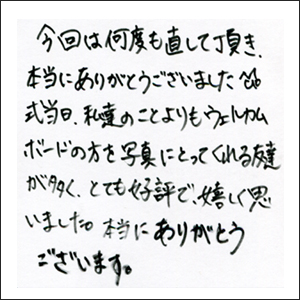 今回は何度も直して頂き、
本当にありがとうございました
式当日、私達のことよりもウェルカム
ボードの方を写真にとってくれる友達
が多く、とても好評で、嬉しく思
いました。本当にありがとう
ございます。